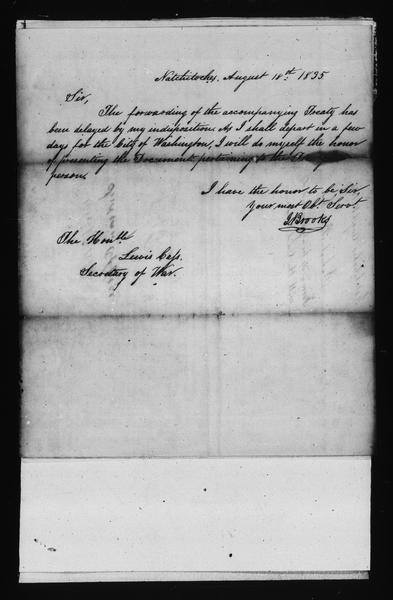 Natchitoches, August 18th. 1835
Sir,
The forwarding of the accompanying Treaty has
been delayed by my indisposition. As I shall depart in a few
days for the City of Washington, I will do myself the honor
of presenting the Documents pertaining to the
person.
I have the honor to be Sir,
Your most Obt. Servt.
J Brooks
The Honble
Lewis Cass.
Secretary of War.